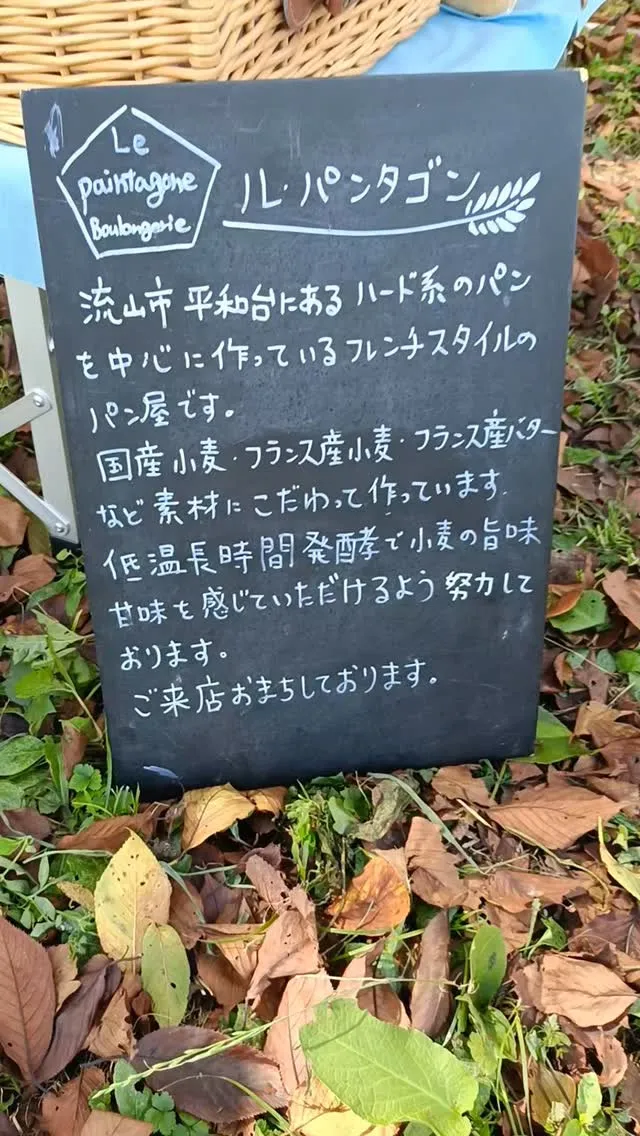 Le
paintagone
Boulangerie
ル・パンタゴン
流山市 平和台にある ハード系のパン
を中心に作っているフレンチスタイルの
パン屋です。
国産小麦・フランス産小麦・フランス産バター
など素材にこだわって作っています.
低温長時間発酵で小麦の旨味
甘味を感じていただけるよう努力して
おります。
ご来店おまちしております。